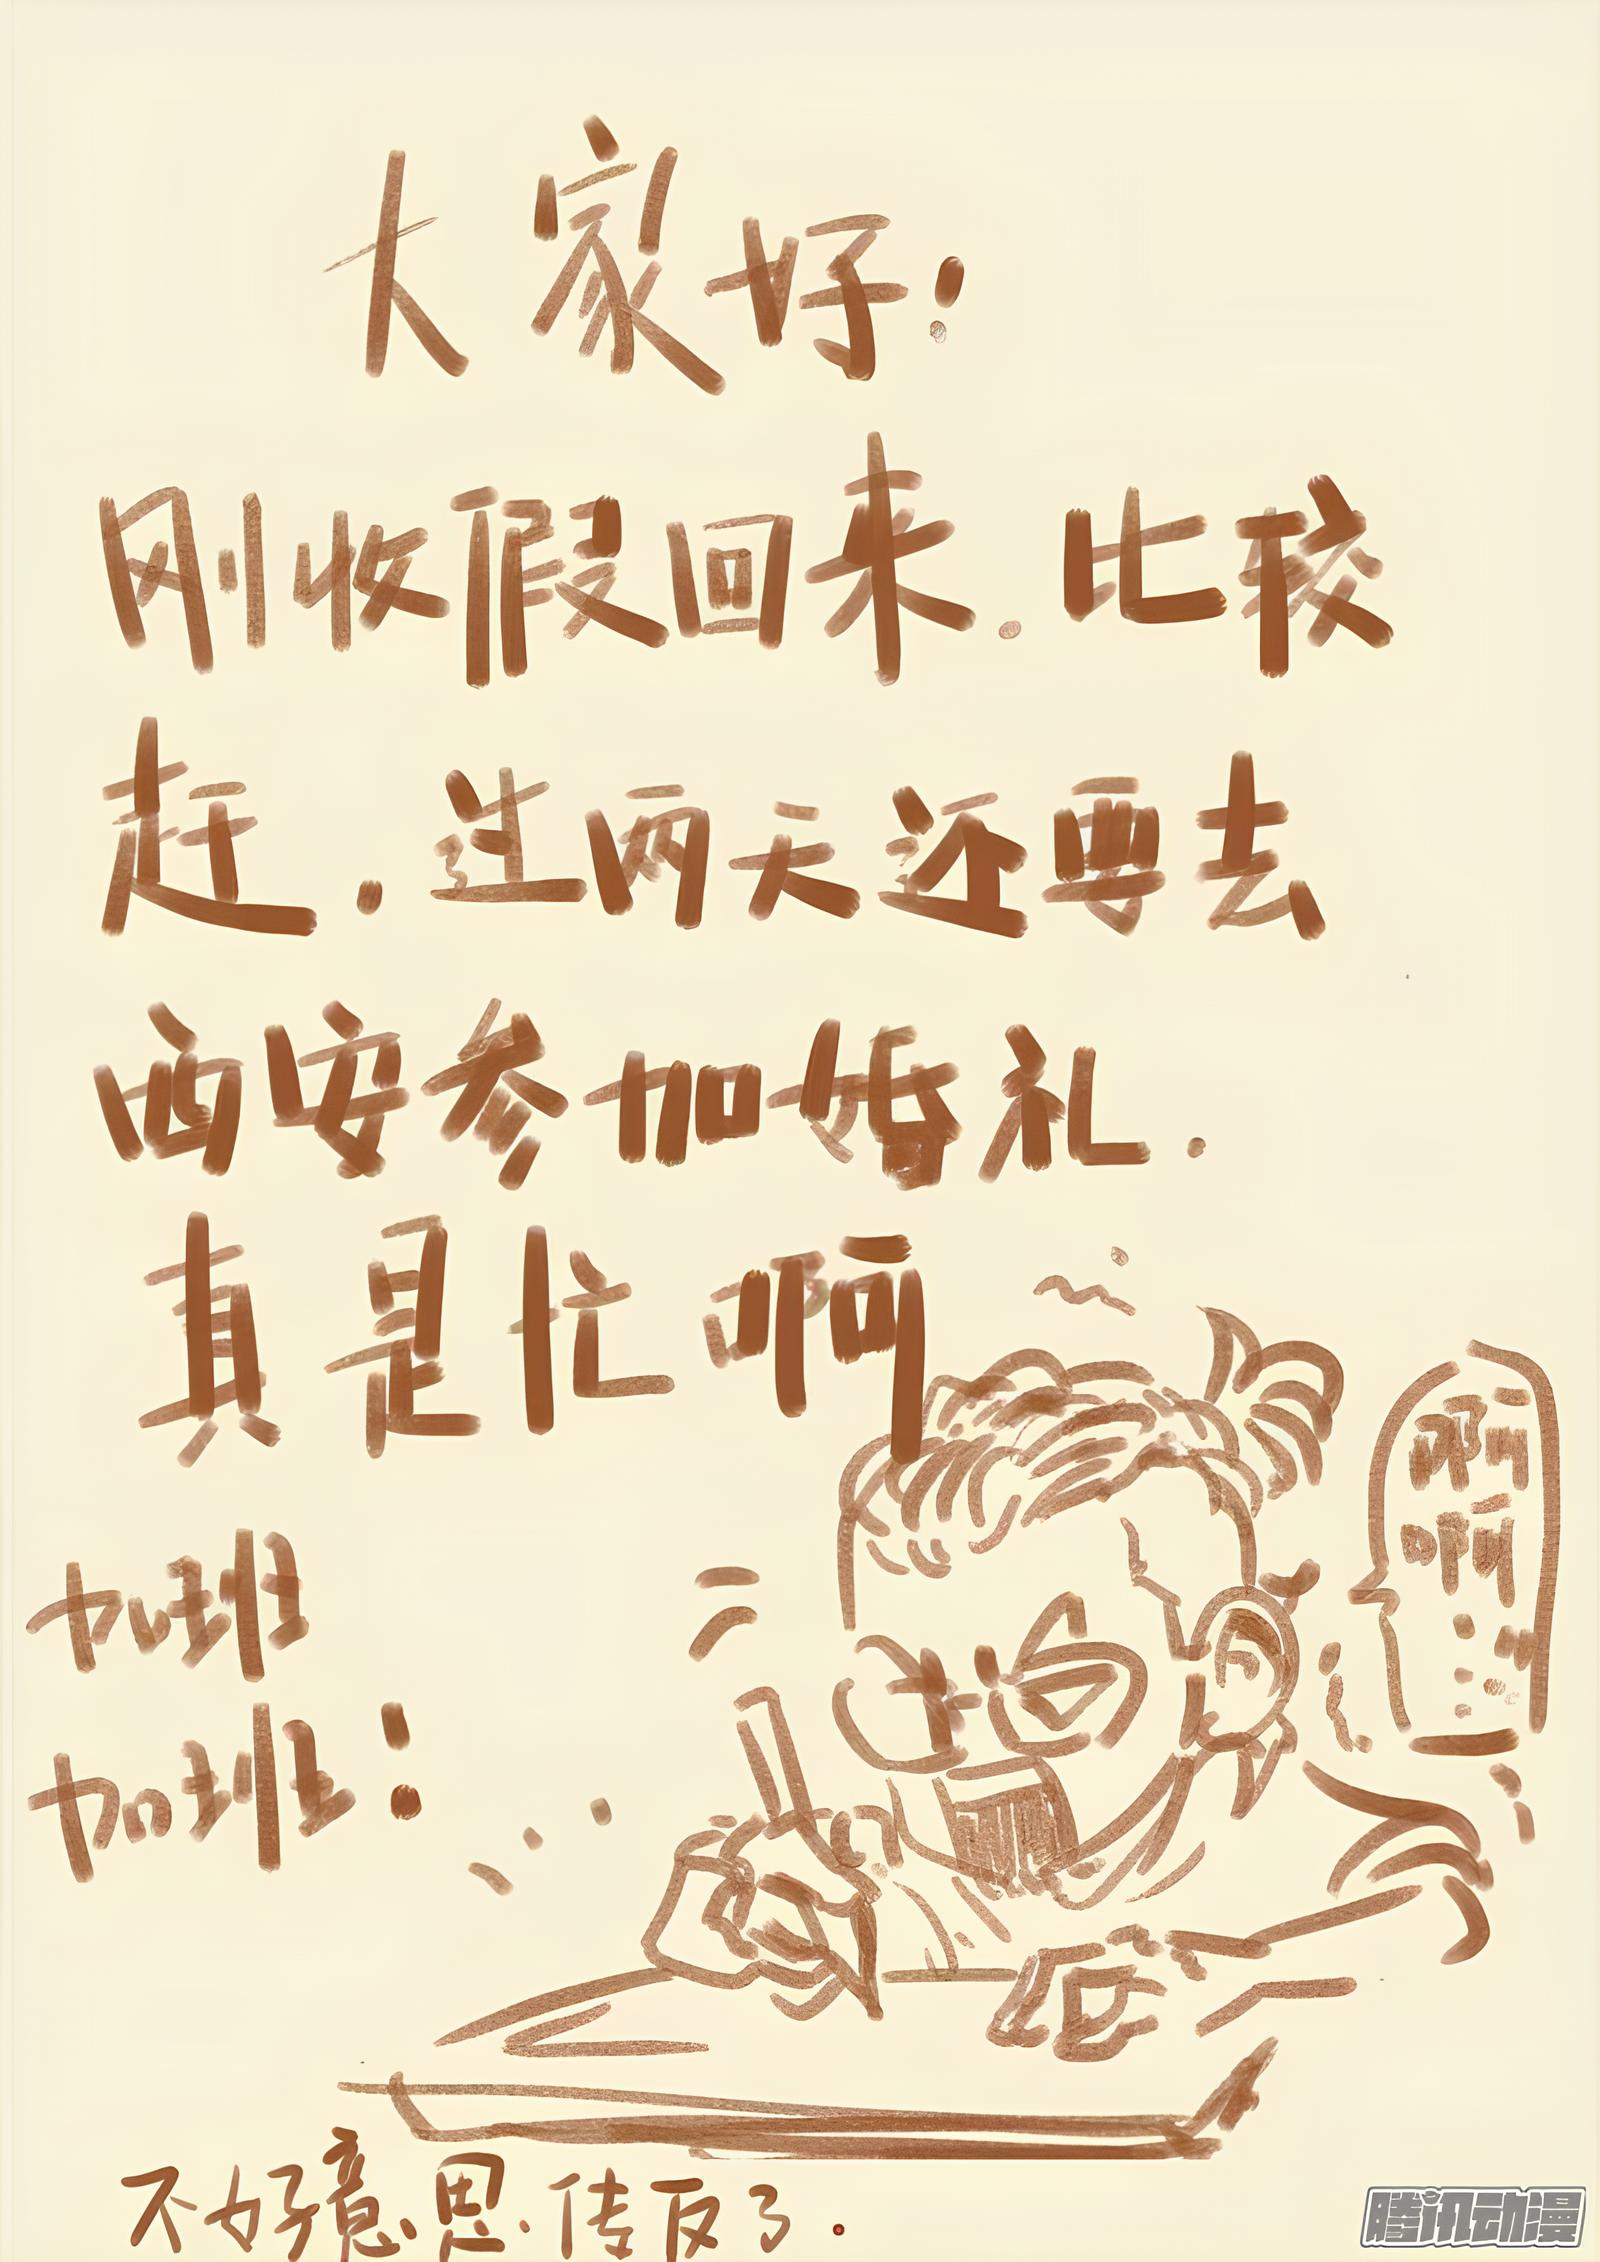 大家好：
刚收假回来.比较
赶.过两天还要去
西安参加婚礼.
真是忙啊
啊
啊
加班
加班！
不好意思.传反了.
腾讯动漫